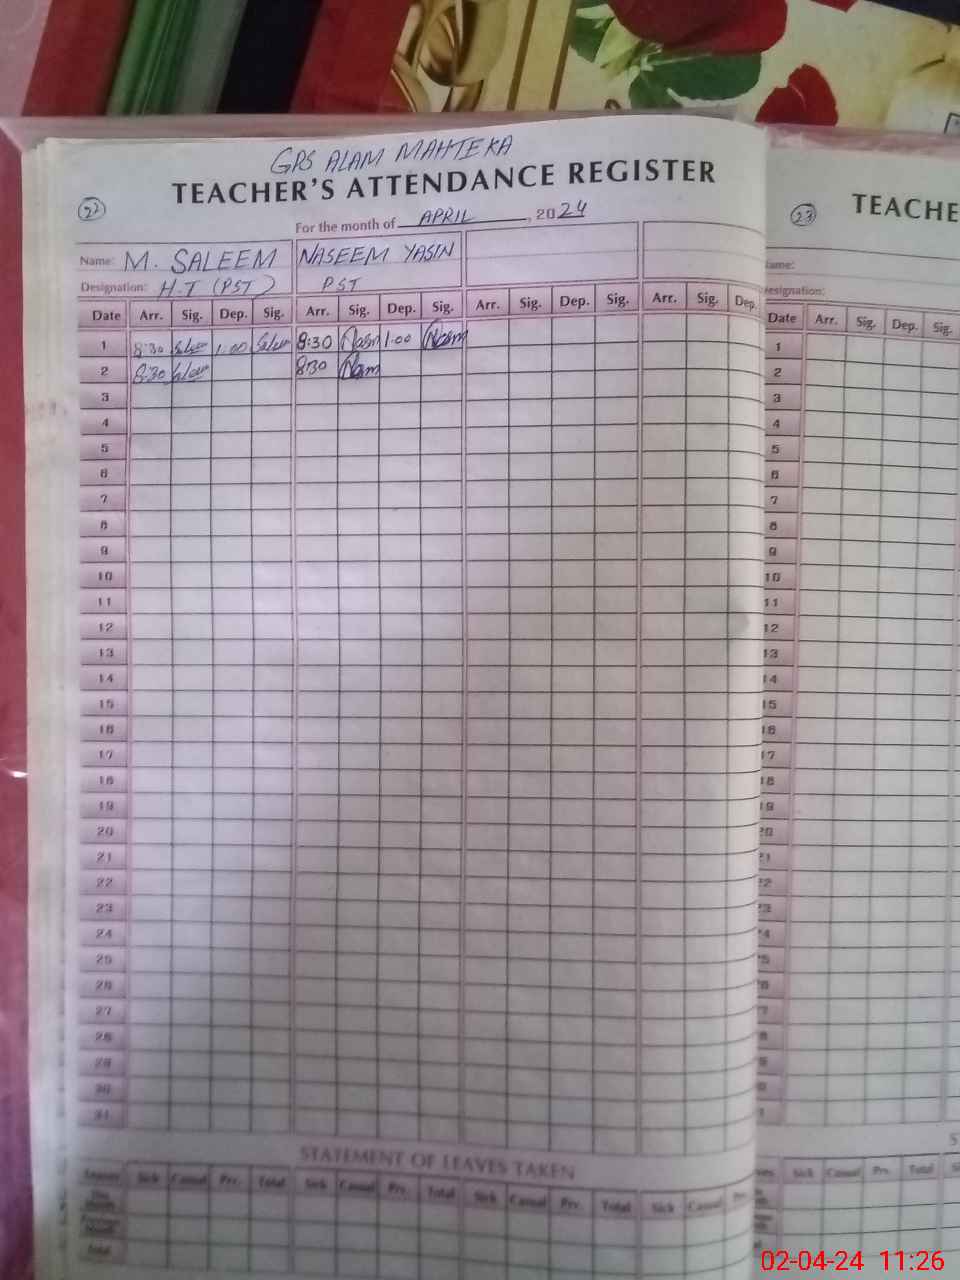 GPS ALAM MAHTEKA
TEACHER'S ATTENDANCE REGISTER
22
For the month of APRIL, 2024
Name: M. SALEEM NASEEM YASIN
Designation: H.T (PST) PST
Date Arr. Sig. Dep. Sig. Arr. Sig. Dep. Sig. Arr. Sig. Dep. Sig. Arr. Sig. Dep.
1 8:30 1:00 8:30 1:00
2 8:30 8:30
3
4
5
6
7
8
9
10
11
12
13
14
15
16
17
18
19
20
21
22
23
24
25
26
27
28
29
30
31
STATEMENT OF LEAVES TAKEN
Leaves Sick Casual Prv. Total Sick Casual Prv. Total Sick Casual Prv. Total Sick Casual
This Month
Total
23
TEACHE
Name:
Designation:
Date Arr. Sig. Dep. Sig.
1
2
3
4
5
6
7
8
9
10
11
12
13
14
15
16
17
18
19
20
21
22
23
24
25
26
27
Sick Casual Prv. Total
02-04-24 11:26